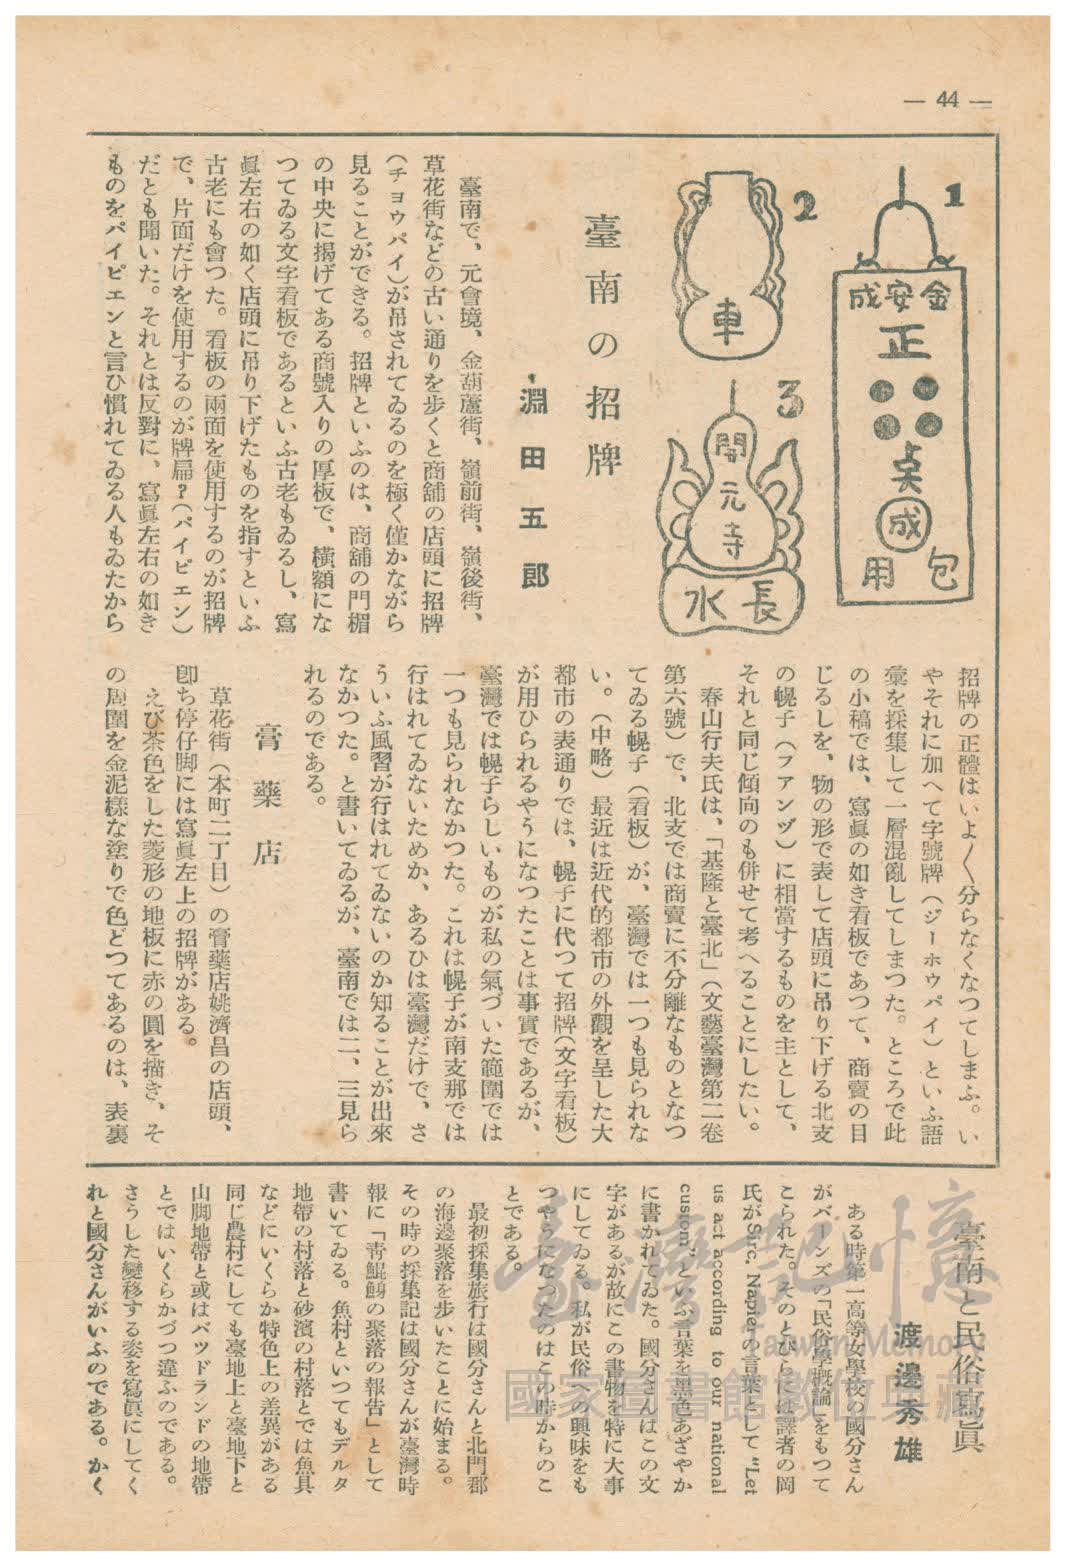 — 44 —
1
金安成
正
点
成
包用
2
車
3
開元寺
長水
臺南の招牌
淵田五郎
臺南で、元會境、金葫蘆街、嶺前街、嶺後街、
草花街などの古い通りを步くと商舖の店頭に招牌
(チヨウパイ)が吊されてゐるのを極く僅かながら
見ることができる。招牌といふのは、商舖の門楣
の中央に揭げてある商號入りの厚板で、橫額にな
つてゐる文字看板であるといふ古老もゐるし、寫
眞左右の如く店頭に吊り下げたものを指すといふ
古老にも會つた。看板の兩面を使用するのが招牌
で、片面だけを使用するのが牌扁?(パイピエン)
だとも聞いた。それとは反對に、寫眞左右の如き
ものをパイピエンと言ひ慣れてゐる人もゐたから
招牌の正體はいよ〱分らなくなつてしまふ。い
やそれに加へて字號牌(ジーホウパイ)といふ語
彙を採集して一層混亂してしまつた。ところで此
の小稿では、寫眞の如き看板であつて、商賣の目
じるしを、物の形で表して店頭に吊り下げる北支
の幌子(フアンヅ)に相當するものを主として、
それと同じ傾向のも併せて考へることにしたい。
春山行夫氏は、「基隆と臺北」(文藝臺灣第二卷
第六號)で、北支では商賣に不分離なものとなつ
てゐる幌子(看板)が、臺灣では一つも見られな
い。(中略) 最近は近代的都市の外觀を呈した大
都市の表通りでは、幌子に代つて招牌(文字看板)
が用ひられるやうになつたことは事實であるが、
臺灣では幌子らしいものが私の氣づいた範圍では
一つも見られなかつた。これは幌子が南支那では
行はれてゐないためか、あるひは臺灣だけで、さ
ういふ風習が行はれてゐないのか知ることが出來
なかつた。と書いてゐるが、臺南では二、三見ら
れるのである。
膏藥店
草花街(本町二丁目)の膏藥店姚濟昌の店頭、
卽ち停仔脚には寫眞左上の招牌がある。
えび茶色をした菱形の地板に赤の圓を描き、そ
の周圍を金泥樣な塗りで色どつてあるのは、表裏
臺南と民俗寫眞
渡邊秀雄
ある時第一高等女學校の國分さん
がバーンズの「民俗學概論」をもつて
こられた。そのとびらには譯者の岡
氏がSirc. Napierの言葉として“Let
us act according to our national
custom”といふ言葉を墨色あざやか
に書かれてゐた。國分さんはこの文
字があるが故にこの書物を特に大事
にしてゐる。私が民俗への興味をも
つやうになつたのはこの時からのこ
とである。
最初採集旅行は國分さんと北門郡
の海邊聚落を步いたことに始まる。
その時の採集記は國分さんが臺灣時
報に「靑鯤鯓の聚落の報告」として
書いてゐる。魚村といつてもデルタ
地帶の村落と砂濱の村落とでは魚具
などにいくらか特色上の差異がある
同じ農村にしても臺地上と臺地下と
山脚地帶と或はバツドランドの地帶
とではいくらかづつ違ふのである。
さうした變移する姿を寫眞にしてく
れと國分さんがいふのである。かく
臺灣記憶
Taiwan Memory
國家圖書館數位典藏